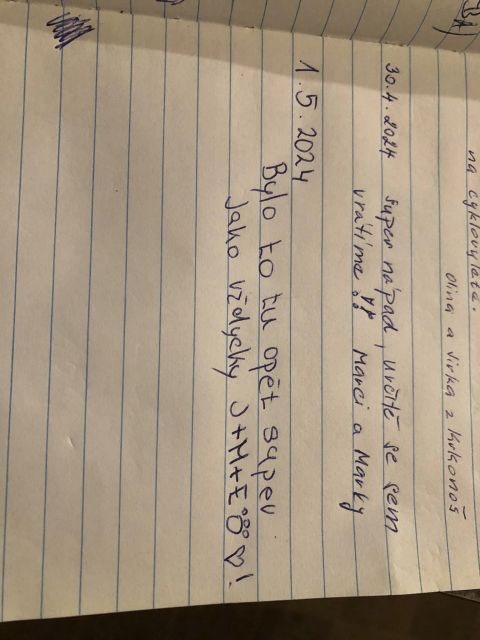 na cyklovýletě.
Olina a Jirka z Krkonoš
30.4.2024 super nápad, určitě se sem
vrátíme !! Marci a Marky
1.5.2024
Bylo to tu opět super
jako vždycky J+M+E ♡!